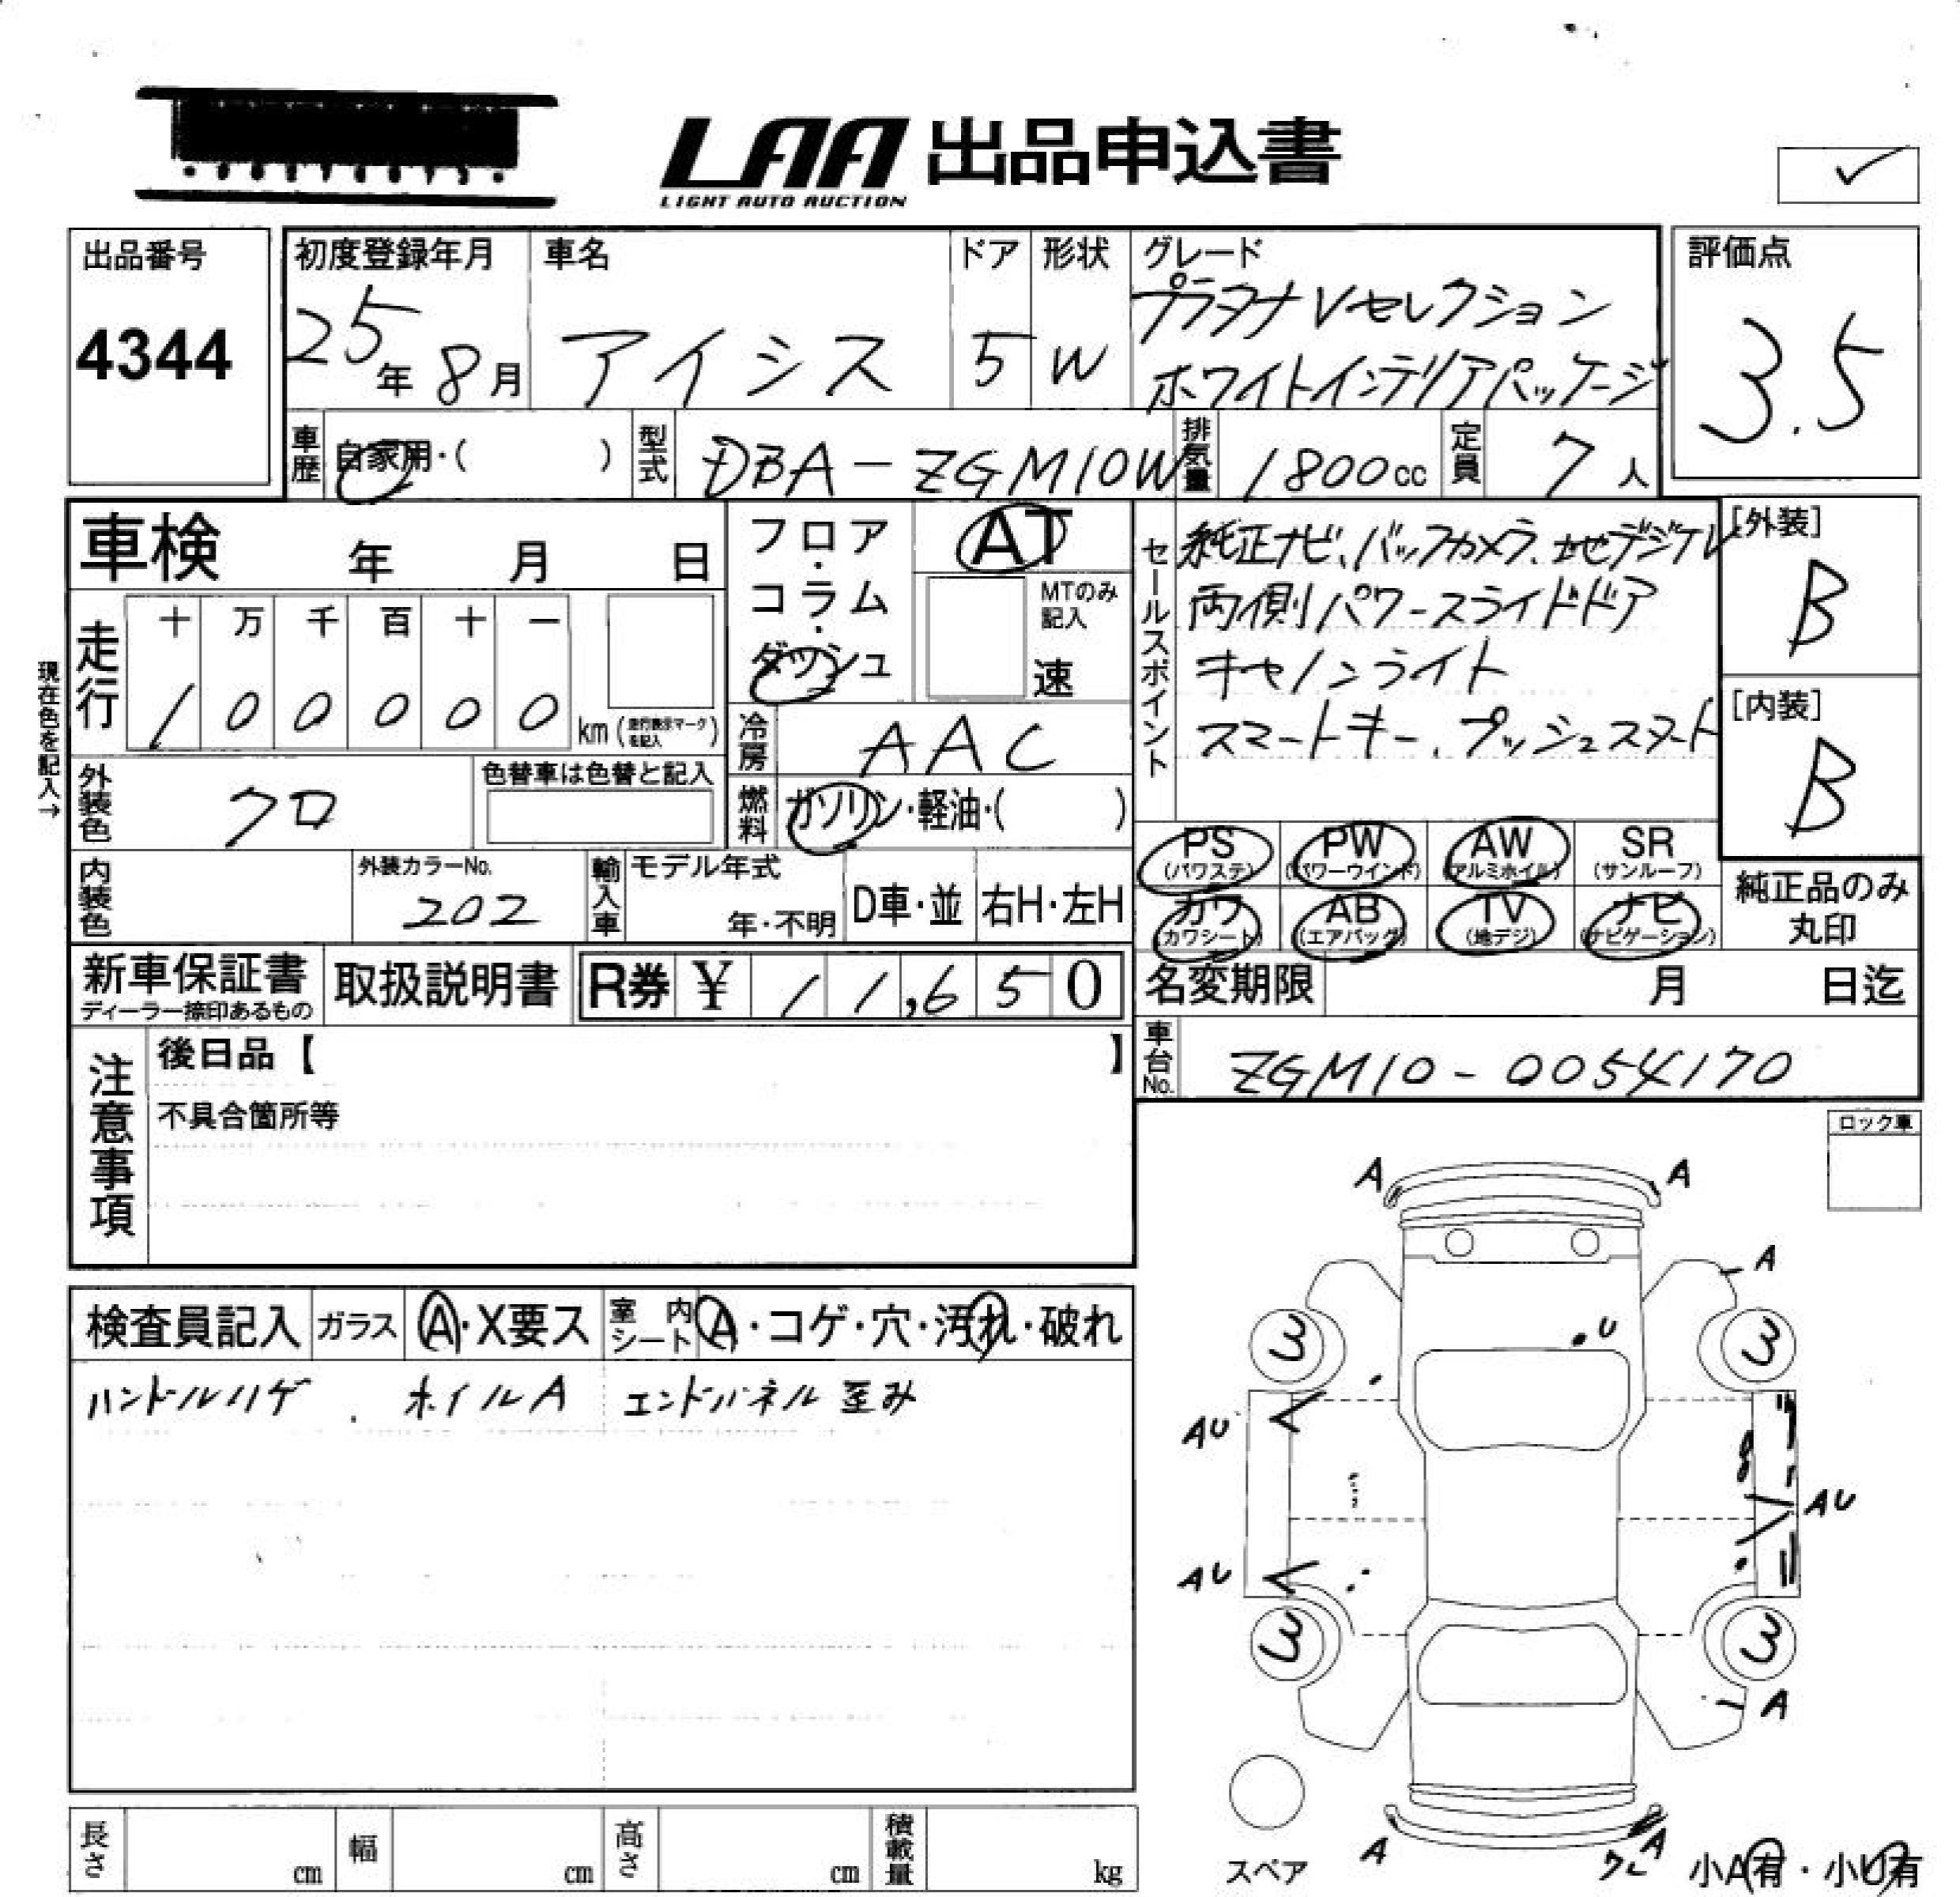 LAA 出品申込書
LIGHT AUTO AUCTION
✓
出品番号
4344
初度登録年月
25年8月
車名
アイシス
ドア
5
形状
W
グレード
プラタナVセレクション
ホワイトインテリアパッケージ
評価点
3.5
車歴
自家用・( )
型式
DBA-ZGM10W
排気量
1800cc
定員
7人
車検 年 月 日
フロア・コラム・ダッシュ
AT
MTのみ記入
速
セールスポイント
純正ナビ、バックカメラ、地デジテレ
両側パワースライドドア
キセノンライト
スマートキー、プッシュスタート
[外装]
B
[内装]
B
現在色を記入→
走行
十 万 千 百 十 一
1 0 0 0 0 0 km(走行表示マークを記入)
冷房
AAC
外装色
クロ
色替車は色替と記入
燃料
ガソリン・軽油・( )
内装色
外装カラーNo.
202
輸入車
モデル年式
年・不明
D車・並
右H・左H
PS
(パワステ)
PW
(パワーウインド)
AW
(アルミホイル)
SR
(サンルーフ)
カワ
(カワシート)
AB
(エアバッグ)
TV
(地デジ)
ナビ
(ナビゲーション)
純正品のみ
丸印
新車保証書
ディーラー捺印あるもの
取扱説明書
R券 ¥ 11,650
名変期限 月 日迄
車台No.
ZGM10-0054170
注意事項
後日品【 】
不具合箇所等
ロック車
検査員記入
ガラス
A・X要ス
室内シート
A・コゲ・穴・汚れ・破れ
ハンドルハゲ . ホイルA エンドパネル歪み
A
A
A
U
3
3
AU
AU
AU
3
3
A
A
A
スペア
小A有・小U有
長さ cm
幅 cm
高さ cm
積載量 kg